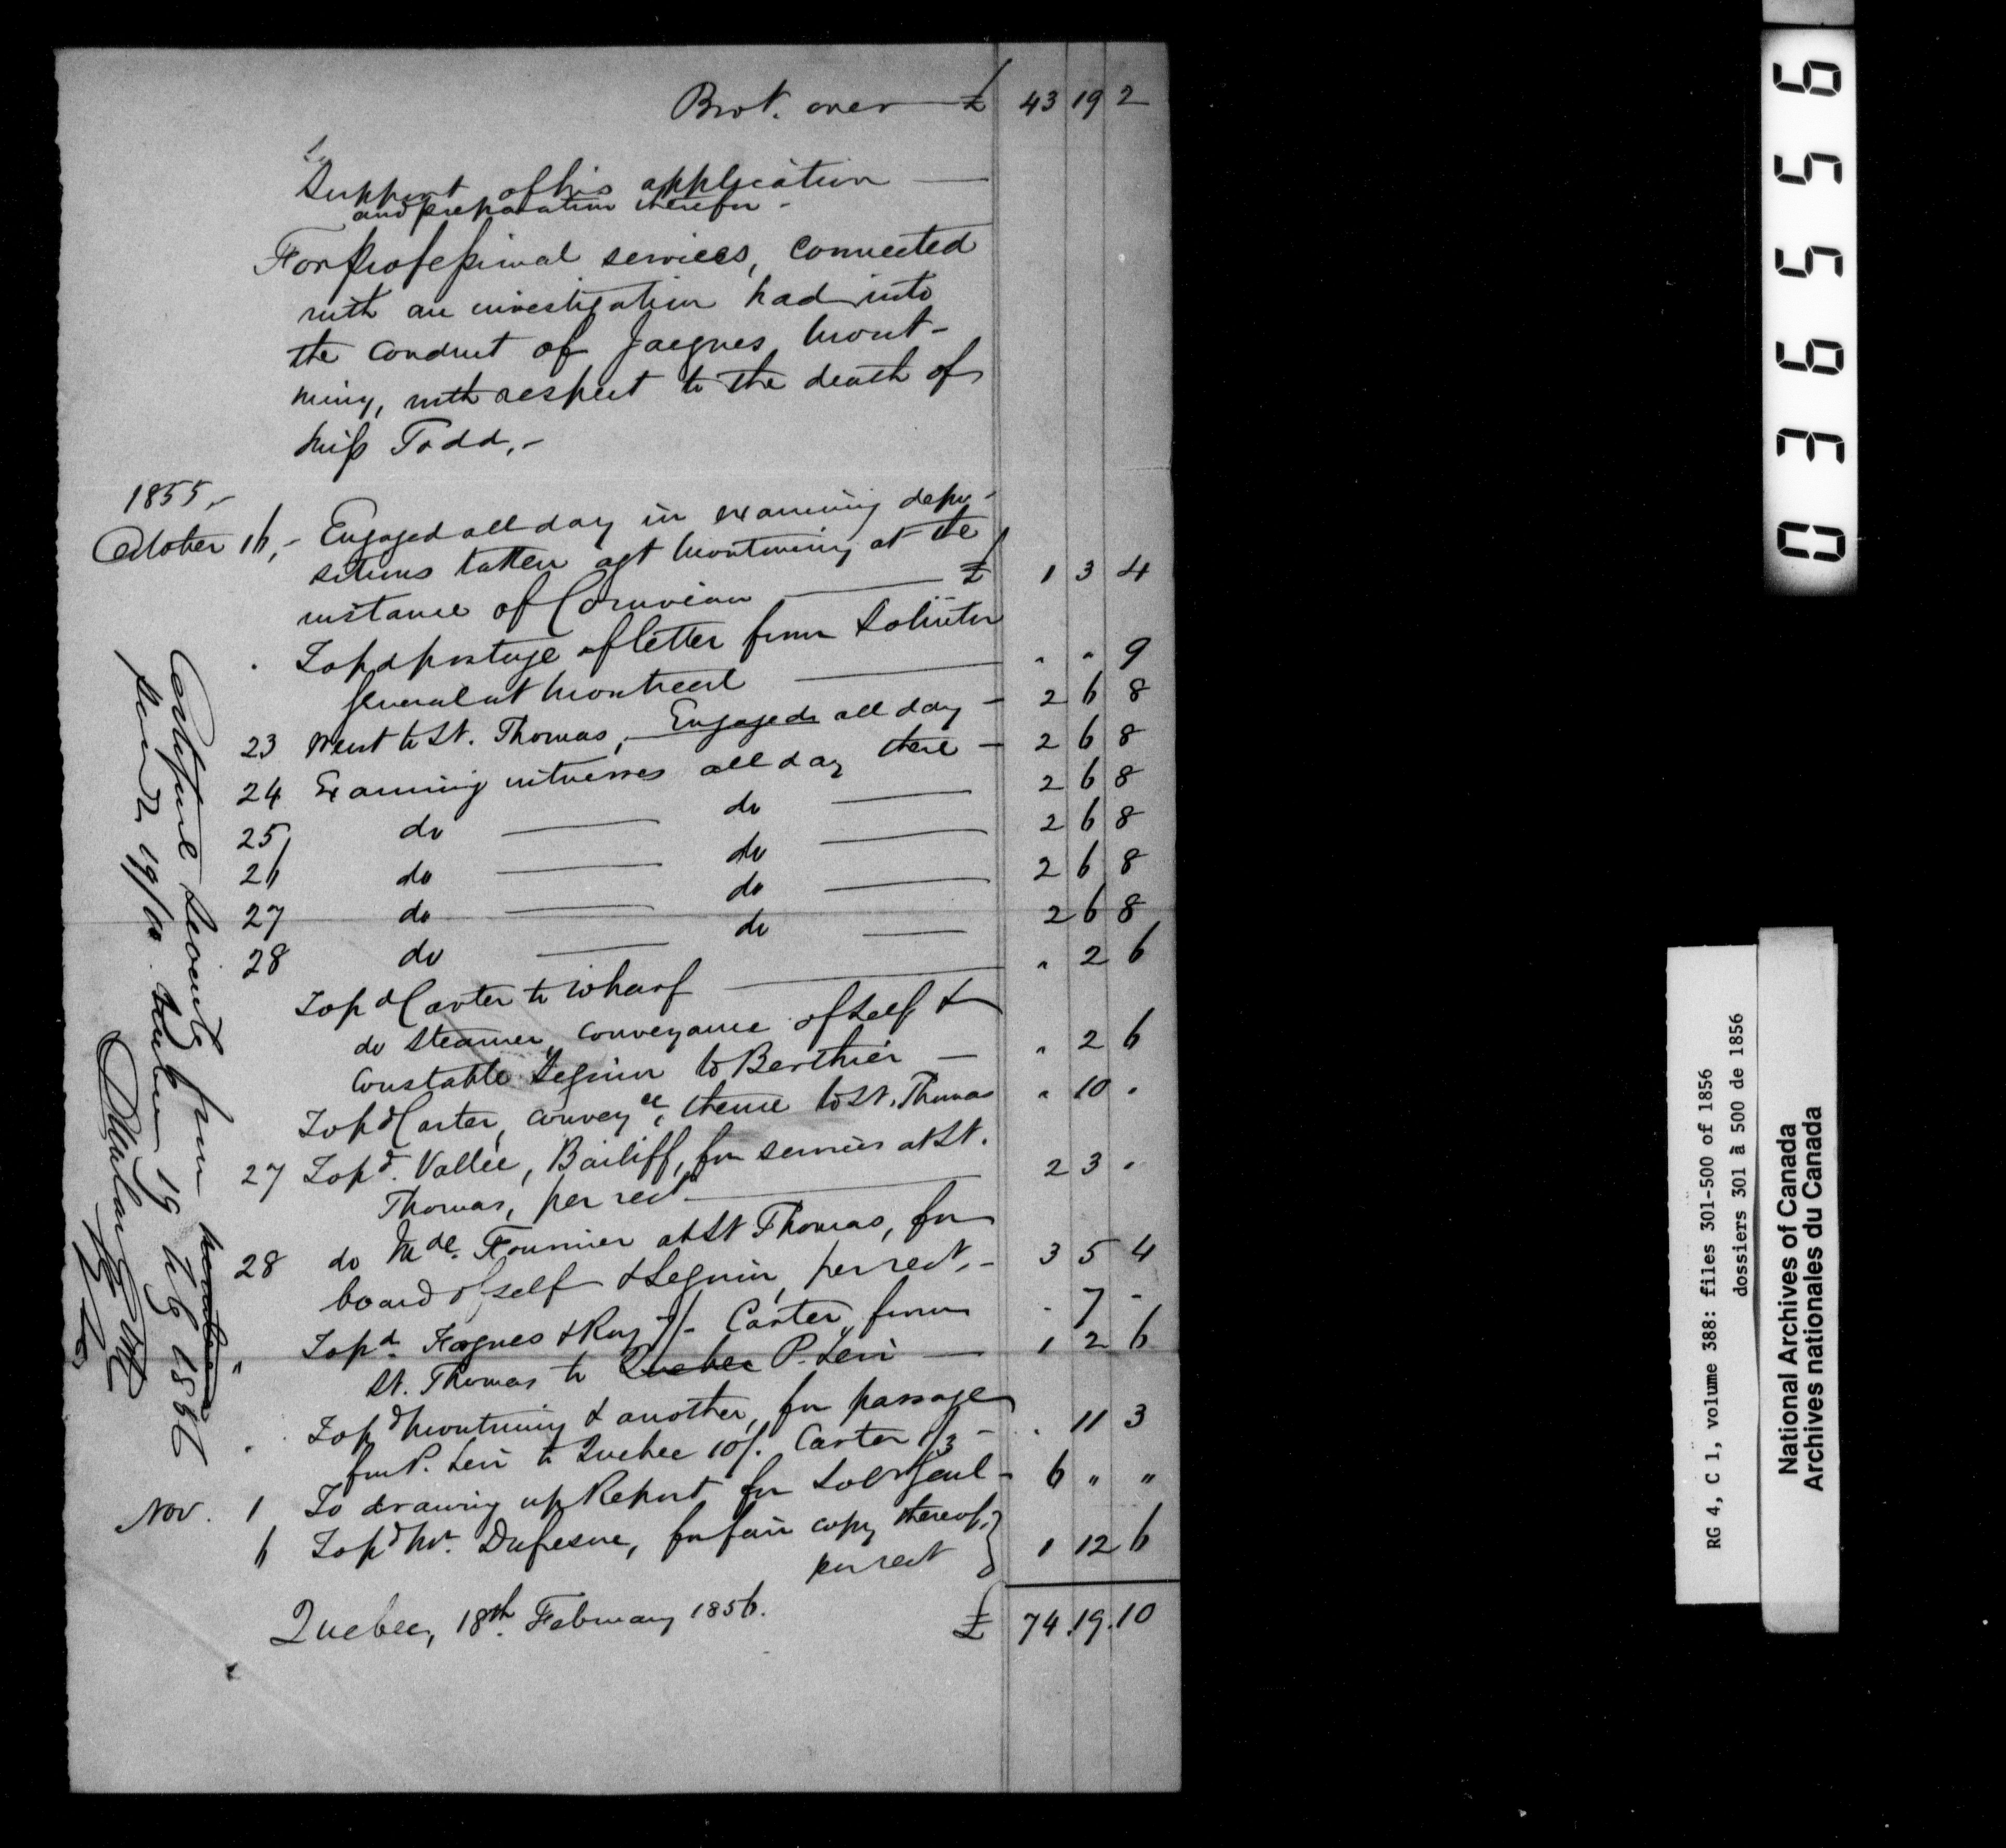 Brot. over £ 43 19 2
Support of his application
and preparation therefor -
For professional services, connected
with an investigation had into
the conduct of Jacques Mont-
miny, with respect to the death of
Miss Todd,-
1855,-
October 16,- Engaged all day in examining depo-
sitions taken agt Montminy at the
instance of Coruvian £ 1 3 4
To pd postage of letter from Solicitor
General at Montreal " " 9
23 Went to St. Thomas, - Engaged all day - 2 6 8
24 Examining witnesses all day there - 2 6 8
25, do do 2 6 8
26 do do 2 6 8
27 do do 2 6 8
28 do do 2 6 8
To pd Carter to wharf " 2 6
do Steamer, conveyance of self &
Constable Seguin to Berthier - " 2 6
To pd Carter, convey ce, thence to St. Thomas " 10 "
27 To pd. Vallée, Bailiff, for services at St.
Thomas, per rect 2 3 "
28 do Mde. Fournier at St Thomas, for
board of self & Seguin, per rect, - 3 5 4
" To pd. Fagnes & Roy 7/- Carter, from - 7 -
St. Thomas to Quebec P. Levi 1 2 6
" To pd Montminy & another, for passage
from P. Levi to Quebec 10/. Carter 1/3 - " 11 3
Nov. 1, To drawing up Report for Solr Genl - 6 " "
6 To pd Mr. Dufresne, for fair copy thereof,
per rect } 1 12 6
Quebec, 18th. February 1856. £ 74.19.10
19 1856
036556
RG 4, C 1, volume 388: files 301-500 of 1856
dossiers 301 à 500 de 1856
National Archives of Canada
Archives nationales du Canada